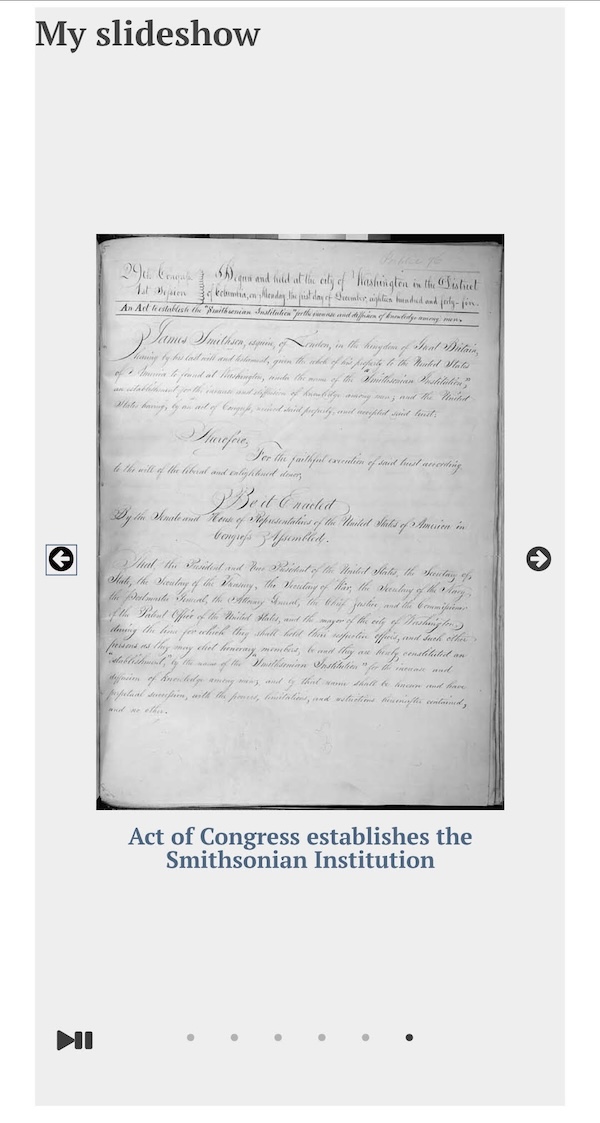 My slideshow
29th Congress
1st Session
Begun and held at the city of Washington in the District
of Columbia, on Monday, the first day of December, eighteen hundred and forty-five.
An Act to establish the "Smithsonian Institution" for the increase and diffusion of knowledge among men.
James Smithson, esquire, of London, in the Kingdom of Great Britain,
having by his last will and testament, given the whole of his property to the United States
of America to found at Washington, under the name of the "Smithsonian Institution,"
an establishment for the increase and diffusion of knowledge among men; and the United
States having, by an act of Congress, received said property, and accepted said trust;
Therefore,
For the faithful execution of said trust according
to the will of the liberal and enlightened donor;
Be it Enacted
By the Senate and House of Representatives of the United States of America in
Congress Assembled.
That, the President and Vice President of the United States, the Secretary of
State, the Secretary of the Treasury, the Secretary of War, the Secretary of the Navy,
the Postmaster General, the Attorney General, the Chief Justice, and the Commissioner
of the Patent Office of the United States, and the mayor of the city of Washington,
during the time for which they shall hold their respective offices, and such other
persons as they may elect honorary members, be and they are hereby constituted an
"establishment," by the name of the "Smithsonian Institution" for the increase and
diffusion of knowledge among men; and by that name shall be known and have
perpetual succession, with the powers, limitations, and restrictions hereinafter contained,
and no other.
Act of Congress establishes the
Smithsonian Institution